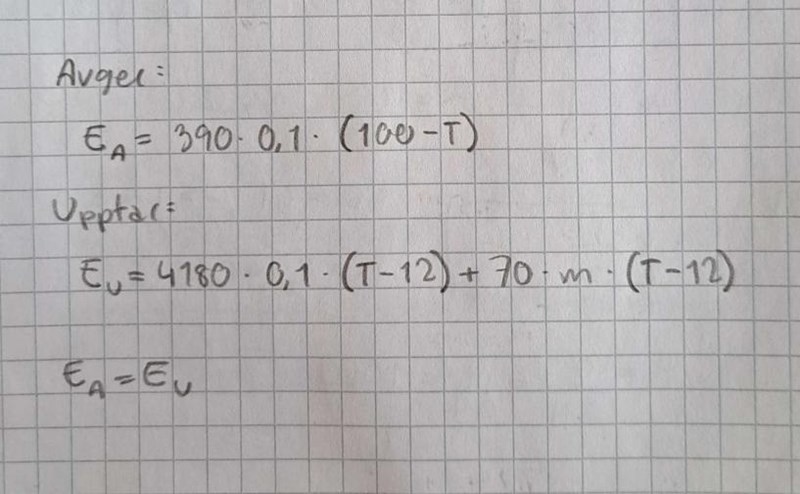 Avger:
E_A = 390 · 0,1 · (100 - T)
Upptar:
E_U = 4180 · 0,1 · (T-12) + 70 · m · (T-12)
E_A = E_U